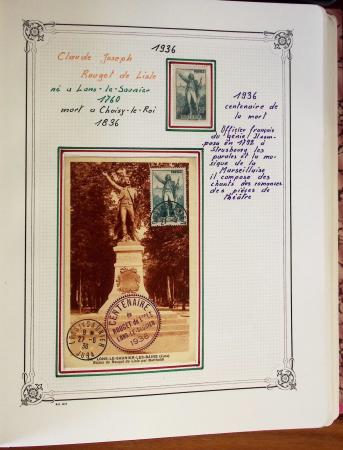 1936
Claude Joseph
Rouget de Lisle
né a Lons-le-Saunier
1760
mort a Choisy-le-Roi
1836
1936
centenaire de
la mort
Officier français
du génie! Il com-
posa en 1792 à
Strasbourg les
paroles et la mu-
sique de la
Marseillaise
il composa des
chants des romances
des pièces de
théâtre
CENTENAIRE
de
ROUGET de L'ISLE
LONS-LE-SAUNIER
1936
LONS-LE-SAUNIER
27-6
36
JURA
LONS-LE-SAUNIER-LES-BAINS (Jura)
Statue de Rouget de Lisle par Bartholdi